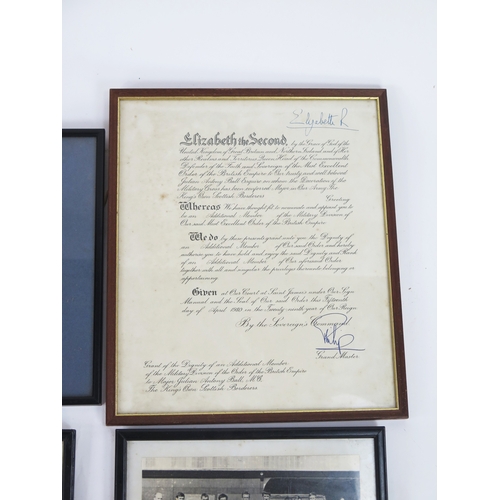 Elizabeth R
Elizabeth the Second, by the Grace of God of the
United Kingdom of Great Britain and Northern Ireland and of Her
other Realms and Territories Queen, Head of the Commonwealth,
Defender of the Faith and Sovereign of the Most Excellent
Order of the British Empire to Our trusty and well beloved
Julian Antony Ball Esquire on whom the Decoration of the
Military Cross has been conferred Major in Our Army The
King's Own Scottish Borderers
Greeting
Whereas We have thought fit to nominate and appoint you to
be an Additional Member of the Military Division of
Our said Most Excellent Order of the British Empire
We do by these presents grant unto you the Dignity of
an Additional Member of Our said Order and hereby
authorise you to have hold and enjoy the said Dignity and Rank
of an Additional Member of Our aforesaid Order
together with all and singular the privileges thereunto belonging or
appertaining
Given at Our Court at Saint James's under Our Sign
Manual and the Seal of Our said Order this Fifteenth
day of April 1980 in the Twenty-ninth year of Our Reign
By the Sovereign's Command
Philip
Grand Master
Grant of the Dignity of an Additional Member
of the Military Division of the Order of the British Empire
to Major Julian Antony Ball, M.C.
The King's Own Scottish Borderers